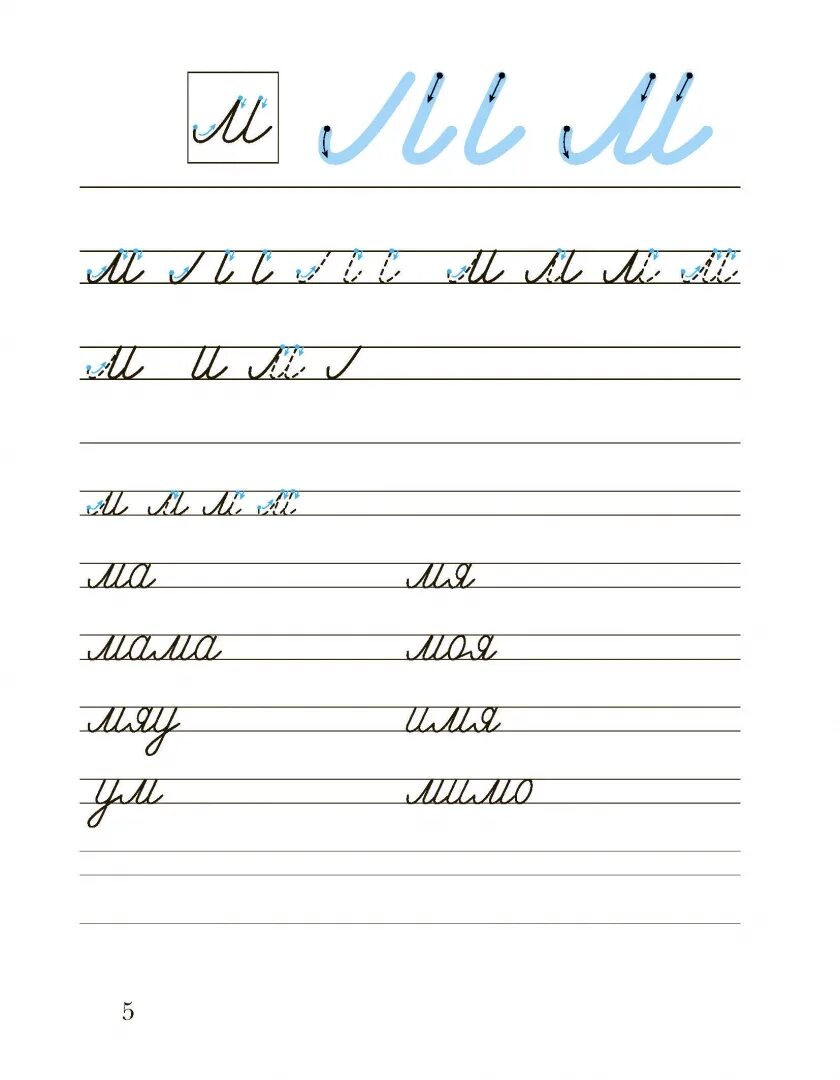 м м
м м м м м
м и м
м м м м
ма мя
мама моя
мяу имя
ум мимо
5